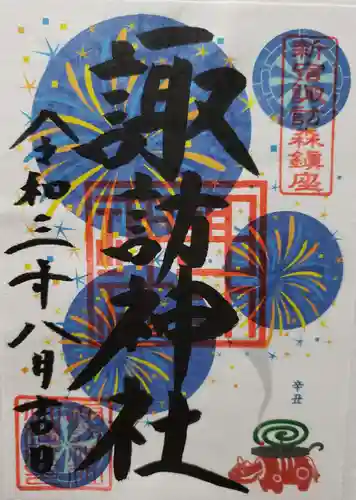 新宿諏訪森鎮座
諏訪神社
令和三年八月吉日
辛丑